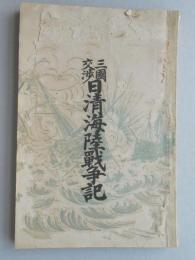 三國交渉
日清海陸戰爭記